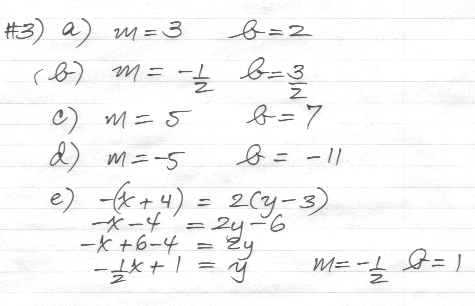 #3) a) m = 3 b = 2
(b) m = -1/2 b = 3/2
c) m = 5 b = 7
d) m = -5 b = -11
e) -(x + 4) = 2(y - 3)
-x - 4 = 2y - 6
-x + 6 - 4 = 2y
-1/2x + 1 = y m = -1/2 b = 1